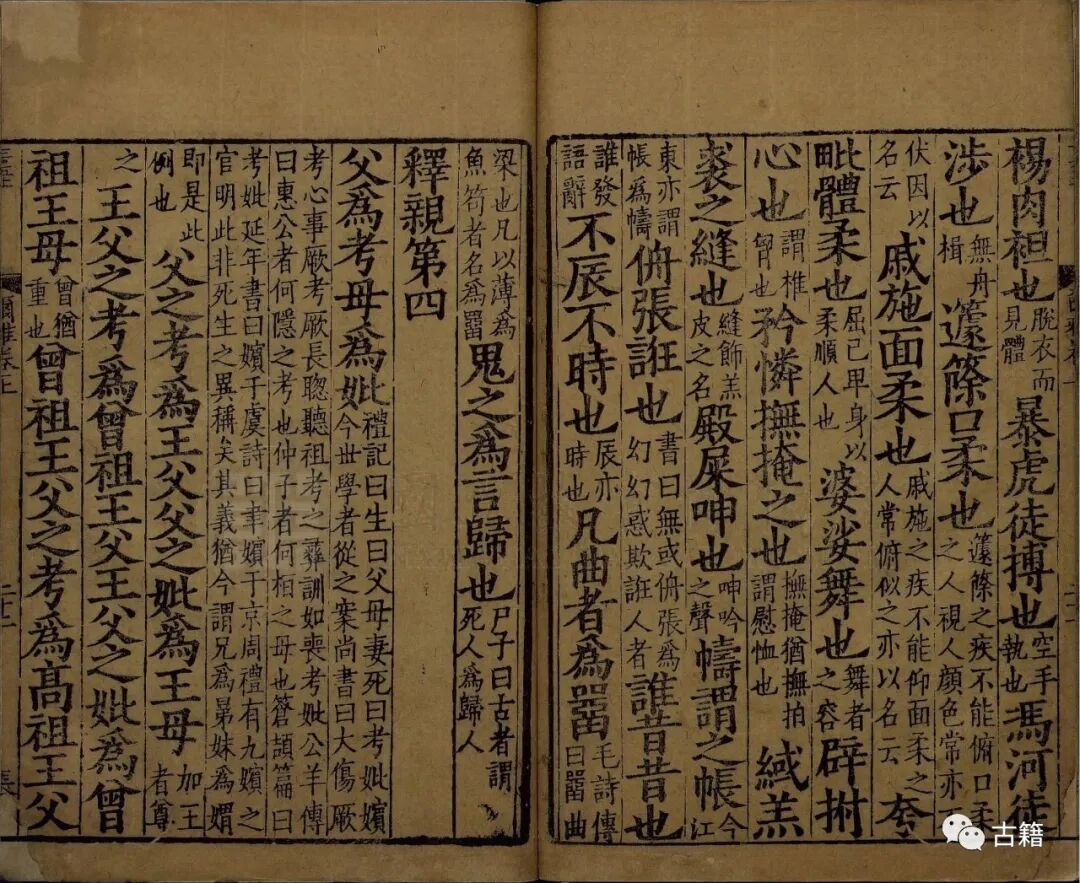 襢肉袒也脫衣而見體暴虎徒搏也空手執也馮河徒
涉也無舟楫籧篨口柔也籧篨之疾不能俯口柔之人視人顏色常亦不
伏因以名云戚施面柔也戚施之疾不能仰面柔之人常俯似之亦以名云夸
毗體柔也屈己卑身以柔順人也婆娑舞也舞者之容辟拊
心也謂椎胷也矜憐撫掩之也撫掩猶撫拍謂慰恤也緎羔
裘之縫也縫飾羔皮之名殿屎呻也呻吟之聲幬謂之帳今江
東亦謂帳為幬侜張誑也書曰無或侜張為幻幻惑欺誑人者誰昔昔也
誰發語辭不辰不時也辰亦時也凡曲者為罶毛詩傳曰罶曲
梁也凡以薄為魚笱者名為罶鬼之為言歸也尸子曰古者謂死人為歸人
釋親第四
父為考母為妣禮記曰生曰父母妻死曰考妣嬪今世學者從之案尚書曰大傷厥
考心事厥考厥長聦聽祖考之彞訓如喪考妣公羊傳曰惠公者何隱之考也仲子者何桓之母也蒼頡篇曰
考妣延年書曰嬪于虞詩曰聿嬪于京周禮有九嬪之官明此非死生之異稱矣其義猶今謂兄為晜妹為媦
即是此例也父之考為王父父之妣為王母加王者尊
之王父之考為曾祖王父王父之妣為曾
祖王母曾猶重也曾祖王父之考為高祖王父
爾雅卷上
二十二
張
古籍